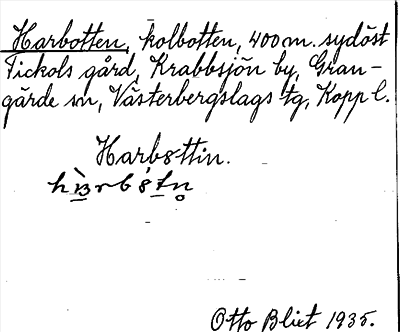 Harbotten, kolbotten, 400 m. sydöst
Tickols gård, Krabbsjön by, Gran-
gärde sn, Västerbergslags tg, Kopp l.
Harbottin.
Otto Blixt 1935.